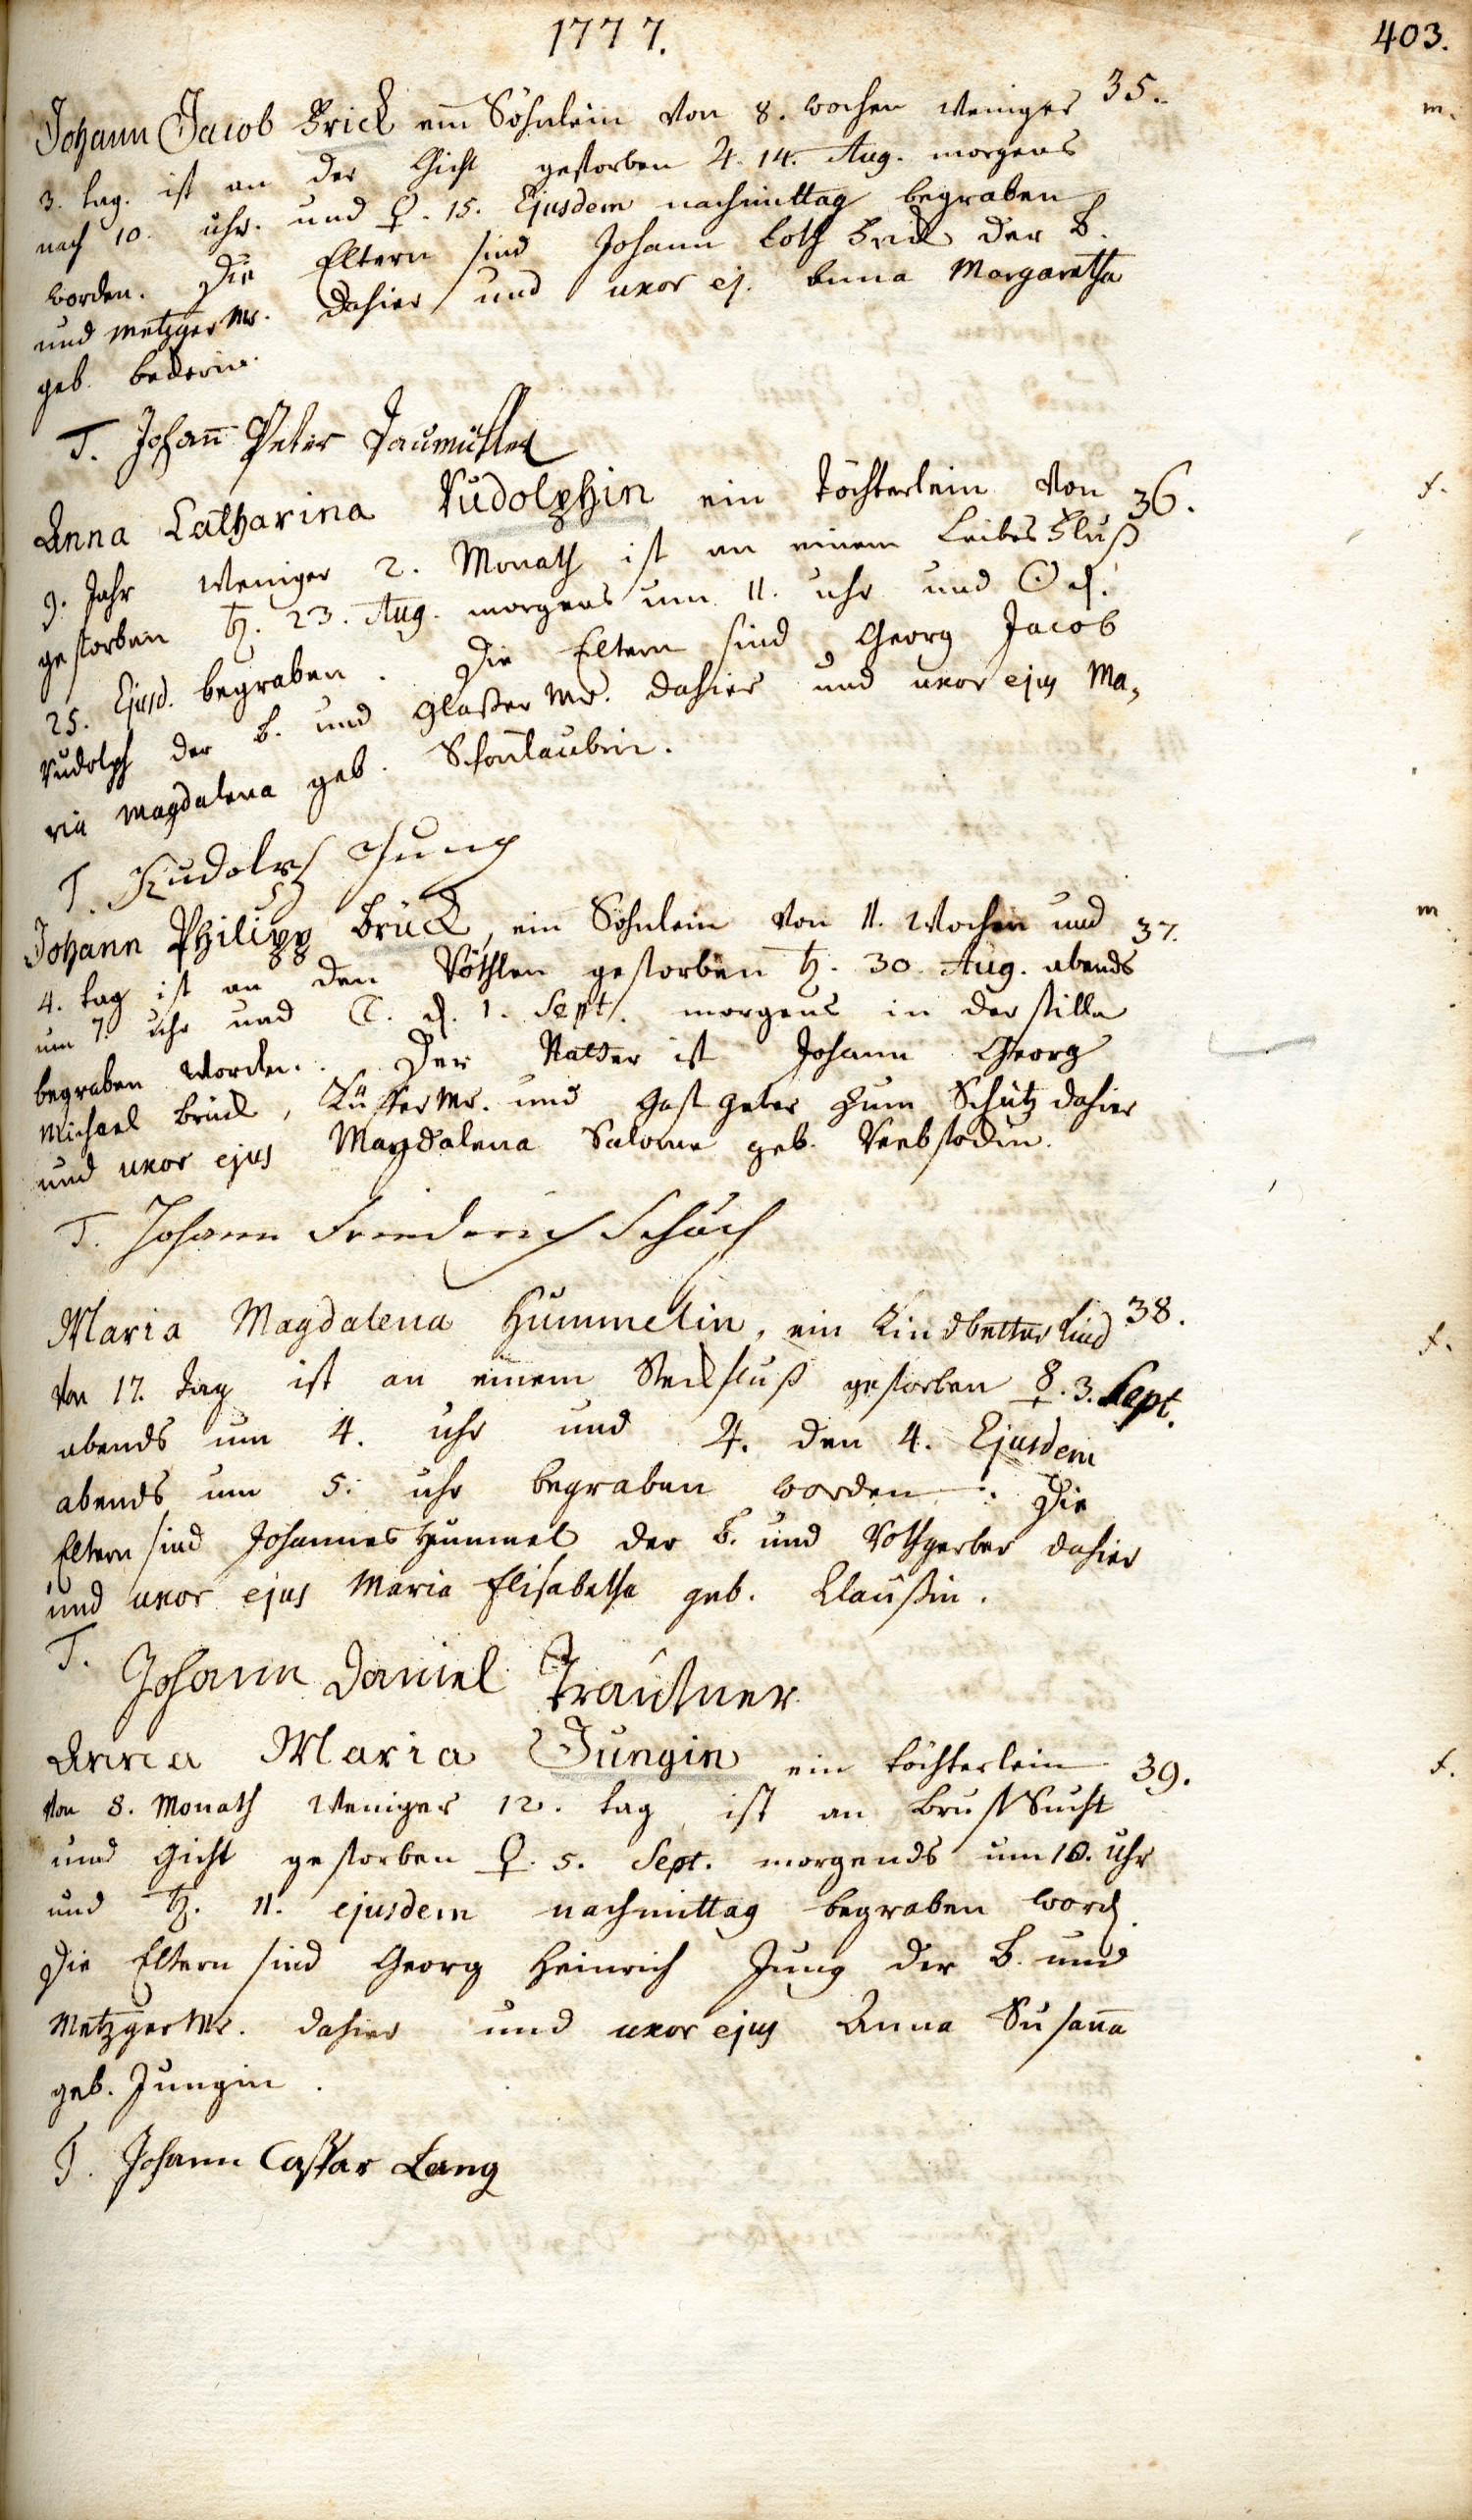 1777.
403.
Johann Jacob Brick ein Söhnlein von 8. wochen weniger 35. m.
3. tag. ist an der Gicht gestorben ♃. 14. Aug. morgens
nach 10. uhr. und ♀. 15. Ejusdem nachmittag begraben
worden. Die Eltern sind Johann Brick der B.
und Metzger Mr. dahier und uxor ej. Anna Margaretha
geb. Bederin.
T. Johann Peter Daumüller
Anna Catharina Rudolphin ein Töchterlein von 36. f.
9. Jahr weniger 2. Monath ist an einem Leibes Fluß
gestorben ♄. 23. Aug. morgens um 11. uhr und ☉ d.
25. Ejusd. begraben. Die Eltern sind Georg Jacob
Rudolph der B. und Glaßer Mr. dahier und uxor ejus Ma-
ria Magdalena geb. Schönlaubin.
T. Rudolph Jung
Johann Philipp Brück, ein Söhnlein von 11. Wochen und 37. m
4. tag ist an den Röthlen gestorben ♄. 30. Aug. abends
um 7. uhr und ☾. d. 1. Sept. morgens in der stille
begraben worden. Der Vatter ist Johann Georg
Michael Brück, Küffer Mr. und Gastgeber zum Schütz dahier
und uxor ejus Magdalena Salome geb. Rebstöckin.
T. Johann Friederich Schäch
Maria Magdalena Hummelin, ein Kindbetter Kind 38. f.
von 17. Tag ist an einem Steckfluß gestorben ☿. 3. Sept.
abends um 4. uhr und ♃. den 4. Ejusdem
abends um 5. uhr begraben worden. Die
Eltern sind Johannes Hummel der B. und Rothgerber dahier
und uxor ejus Maria Elisabetha geb. Claußin.
T. Johann Daniel Trautner
Anna Maria Jungin ein Töchterlein 39. f.
von 8. Monath weniger 12. tag ist an Brust Sucht
und Gicht gestorben ♀. 5. Sept. morgends um 10. Uhr
und ♄. 11. ejusdem nachmittag begraben word.
Die Eltern sind Georg Heinrich Jung der B. und
Metzger Mr. dahier und uxor ejus Anna Susanna
geb. Jungin.
T. Johann Caspar Lang